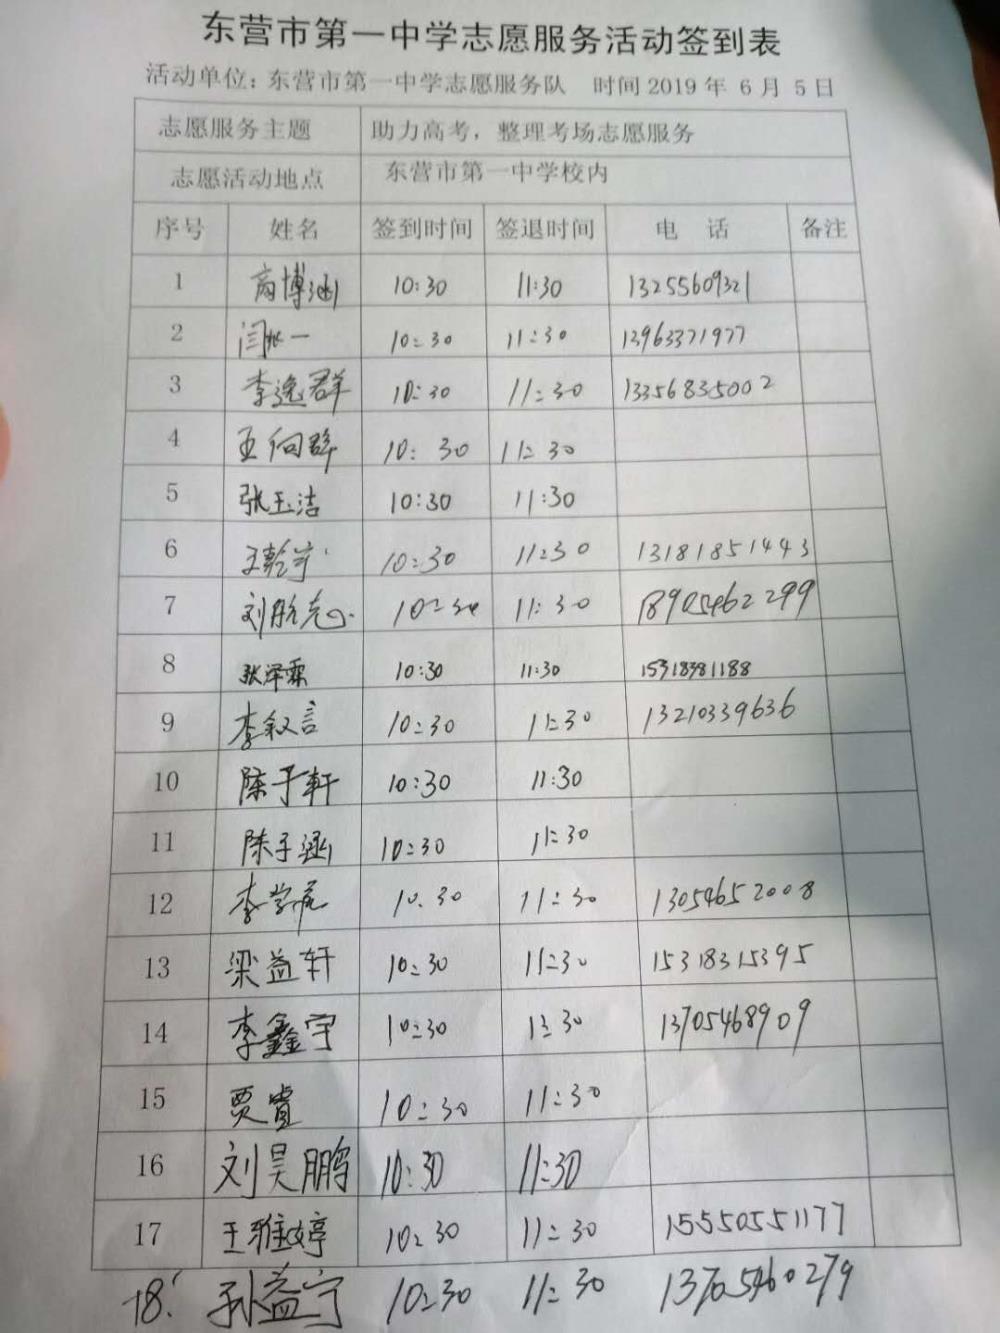 东营市第一中学志愿服务活动签到表
活动单位：东营市第一中学志愿服务队 时间 2019 年 6 月 5 日
志愿服务主题 助力高考，整理考场志愿服务
志愿活动地点 东营市第一中学校内
序号 姓名 签到时间 签退时间 电 话 备注
1 商博涵 10:30 11:30 13255609321
2 闫 一 10:30 11:30 13963371977
3 李逸群 10:30 11:30 13356835002
4 王向群 10:30 11:30
5 张玉洁 10:30 11:30
6 王乾宇 10:30 11:30 13181851443
7 刘航 10:30 11:30 18905462299
8 张泽霖 10:30 11:30 15318381188
9 李叙言 10:30 11:30 13210339636
10 陈子轩 10:30 11:30
11 陈子涵 10:30 11:30
12 李学 10:30 11:30 13054652008
13 梁益轩 10:30 11:30 15318315395
14 李鑫宇 10:30 11:30 13705468909
15 贾 10:30 11:30
16 刘昊鹏 10:30 11:30
17 王雅婷 10:30 11:30 15550551177
18. 孙益宁 10:30 11:30 13705460279